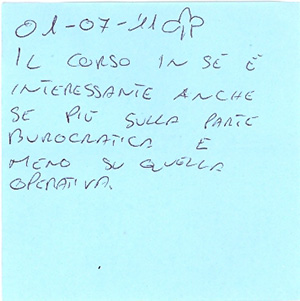 01-07-11
IL CORSO IN SÉ È
INTERESSANTE ANCHE
SE PIÙ SULLA PARTE
BUROCRATICA E
MENO SU QUELLA
OPERATIVA.